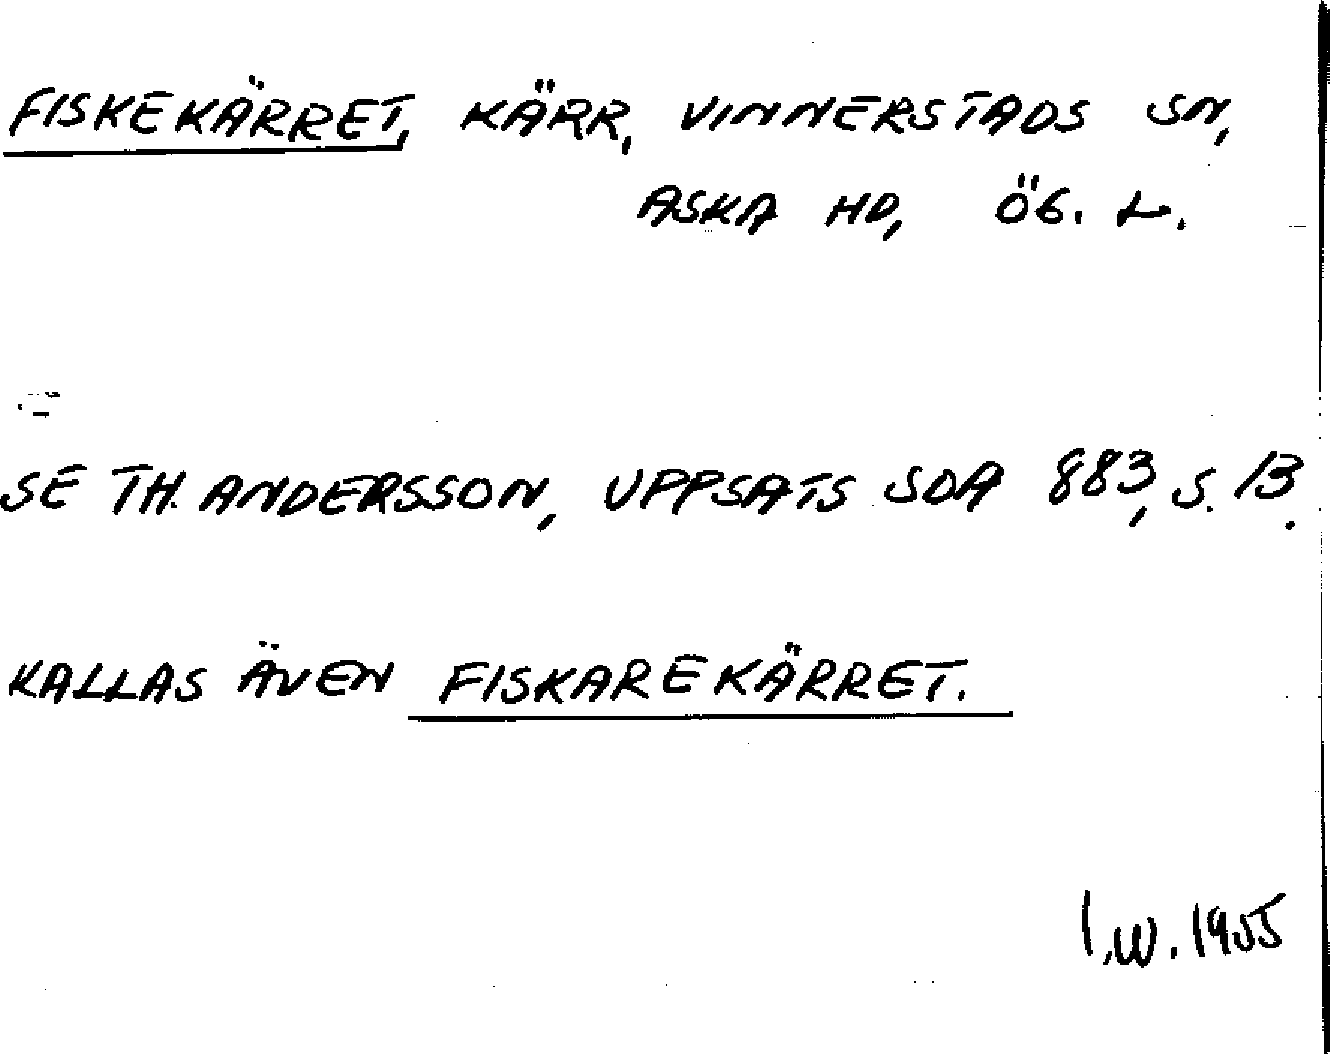 FISKEKÄRRET, KÄRR, VINNERSTADS SN,
ASKA HD, ÖG. L.
SE TH. ANDERSSON, UPPSATS SOA 883, S. 13.
KALLAS ÄVEN FISKAREKÄRRET.
I.W. 1955